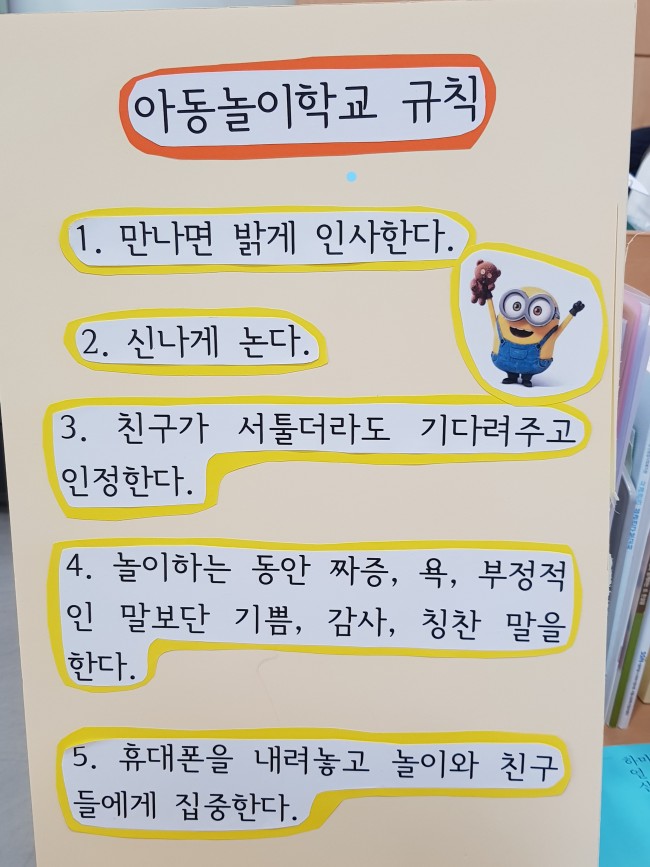 아동놀이학교 규칙
1. 만나면 밝게 인사한다.
2. 신나게 논다.
3. 친구가 서툴더라도 기다려주고
인정한다.
4. 놀이하는 동안 짜증, 욕, 부정적
인 말보단 기쁨, 감사, 칭찬 말을
한다.
5. 휴대폰을 내려놓고 놀이와 친구
들에게 집중한다.